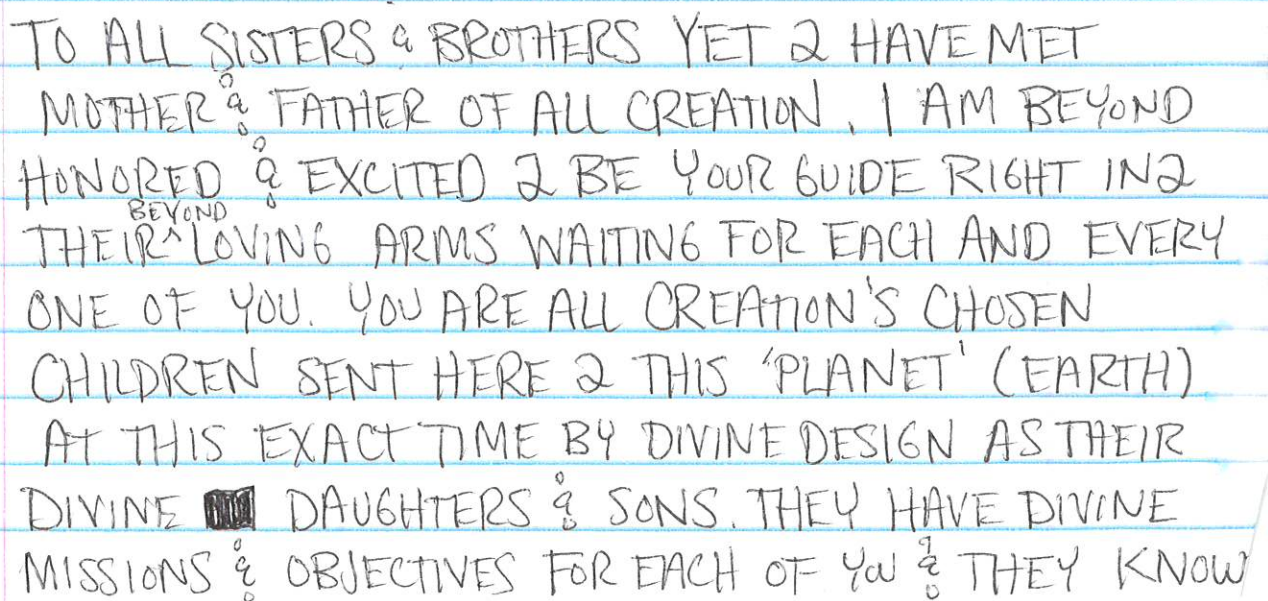 TO ALL SISTERS & BROTHERS YET 2 HAVE MET
MOTHER & FATHER OF ALL CREATION. I AM BEYOND
HONORED & EXCITED 2 BE YOUR GUIDE RIGHT IN2
THEIR ^BEYOND LOVING ARMS WAITING FOR EACH AND EVERY
ONE OF YOU. YOU ARE ALL CREATION'S CHOSEN
CHILDREN SENT HERE 2 THIS 'PLANET' (EARTH)
AT THIS EXACT TIME BY DIVINE DESIGN AS THEIR
DIVINE DAUGHTERS & SONS. THEY HAVE DIVINE
MISSIONS & OBJECTIVES FOR EACH OF YOU & THEY KNOW